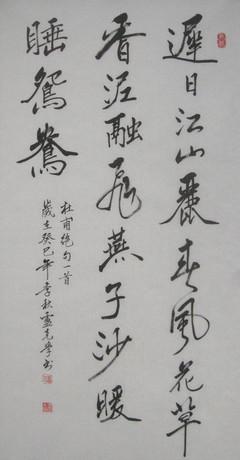 遲日江山麗春風花草
香泥融飛燕子沙暖
睡鴛鴦
杜甫絕句一首
歲在癸巳年季秋